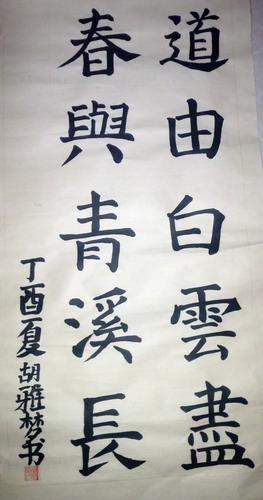 道由白雲盡
春與青溪長
丁酉夏胡雅梦书